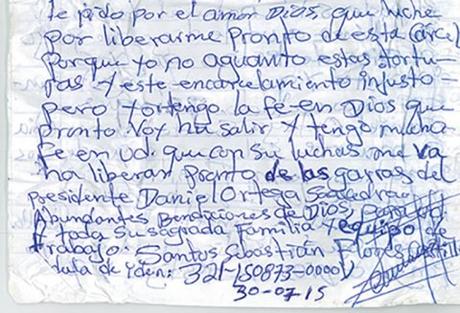 te pido por el amor DIOS, que luche
por liberarme Pronto de esta Carcel
Porque yo no aguanto estas tortu-
ras y este encarcelamiento injusto-
pero yo tengo la fe en Dios que
pronto voy ha salir y tengo mucha
Fe en ud. que con su luchas me va
ha liberar pronto de las garras del
presidente Daniel Ortega Saavedra
Abundantes Bendiciones de Dios, para ud.
y toda su sagrada familia y equipo de
trabajo. Santos Sebastián Flores
de 321-150873-0000V
30-07-15